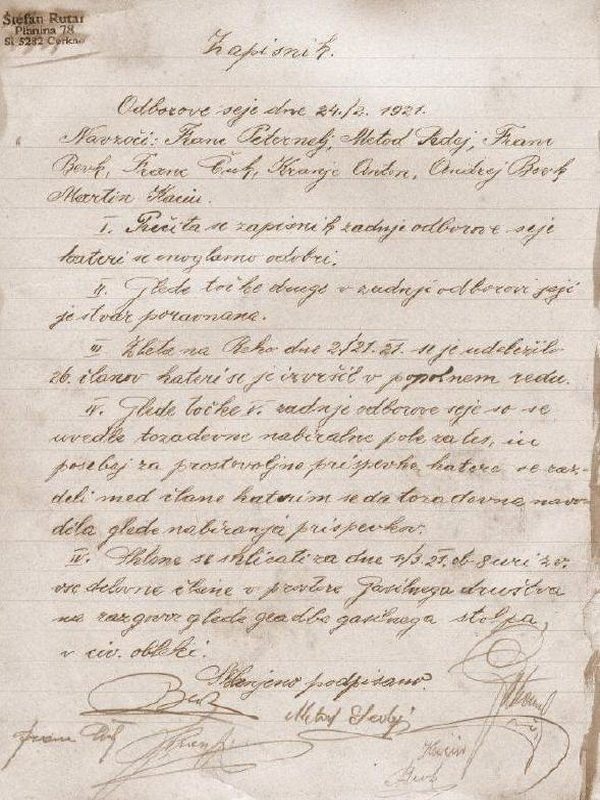 Štefan Rutar
Planina 78
SI 5282 Cerkno
Zapisnik.
Odborove seje dne 24./2. 1921.
Navzoči: Franc Peternelj, Metod Sedej, Franc
Bevk, Franc Čuk, Kranjc Anton, Andrej Bevk
Martin Kacin.
I. Prečita se zapisnik zadnje odborove seje
kateri se enoglasno odobri.
II. Glede točke druge v zadnji odborovi seji
je stvar poravnana.
III Izleta na Reko dne 2/21. 21. se je udeležilo
26. članov kateri se je izvršil v popolnem redu.
IV. Glede točke V. zadnje odborove seje so se
uvedle tozadevne nabiralne pole za les, in
posebej za prostovoljne prispevke, katere se raz-
deli med člane katerim se da tozadevna navo-
dila glede nabiranja prispevkov.
IV. Sklene se sklicati za dne 4/3. 21. ob 8 uri zv.
vse delovne člane v prostore Gasilnega društva
na razgovor glede gradbe gasilnega stolpa,
v civ. obleki.
Sklenjeno podpisano.
Bevk
Metod Sedej
Franc Čuk
Kranjc
Kacin
Bevk